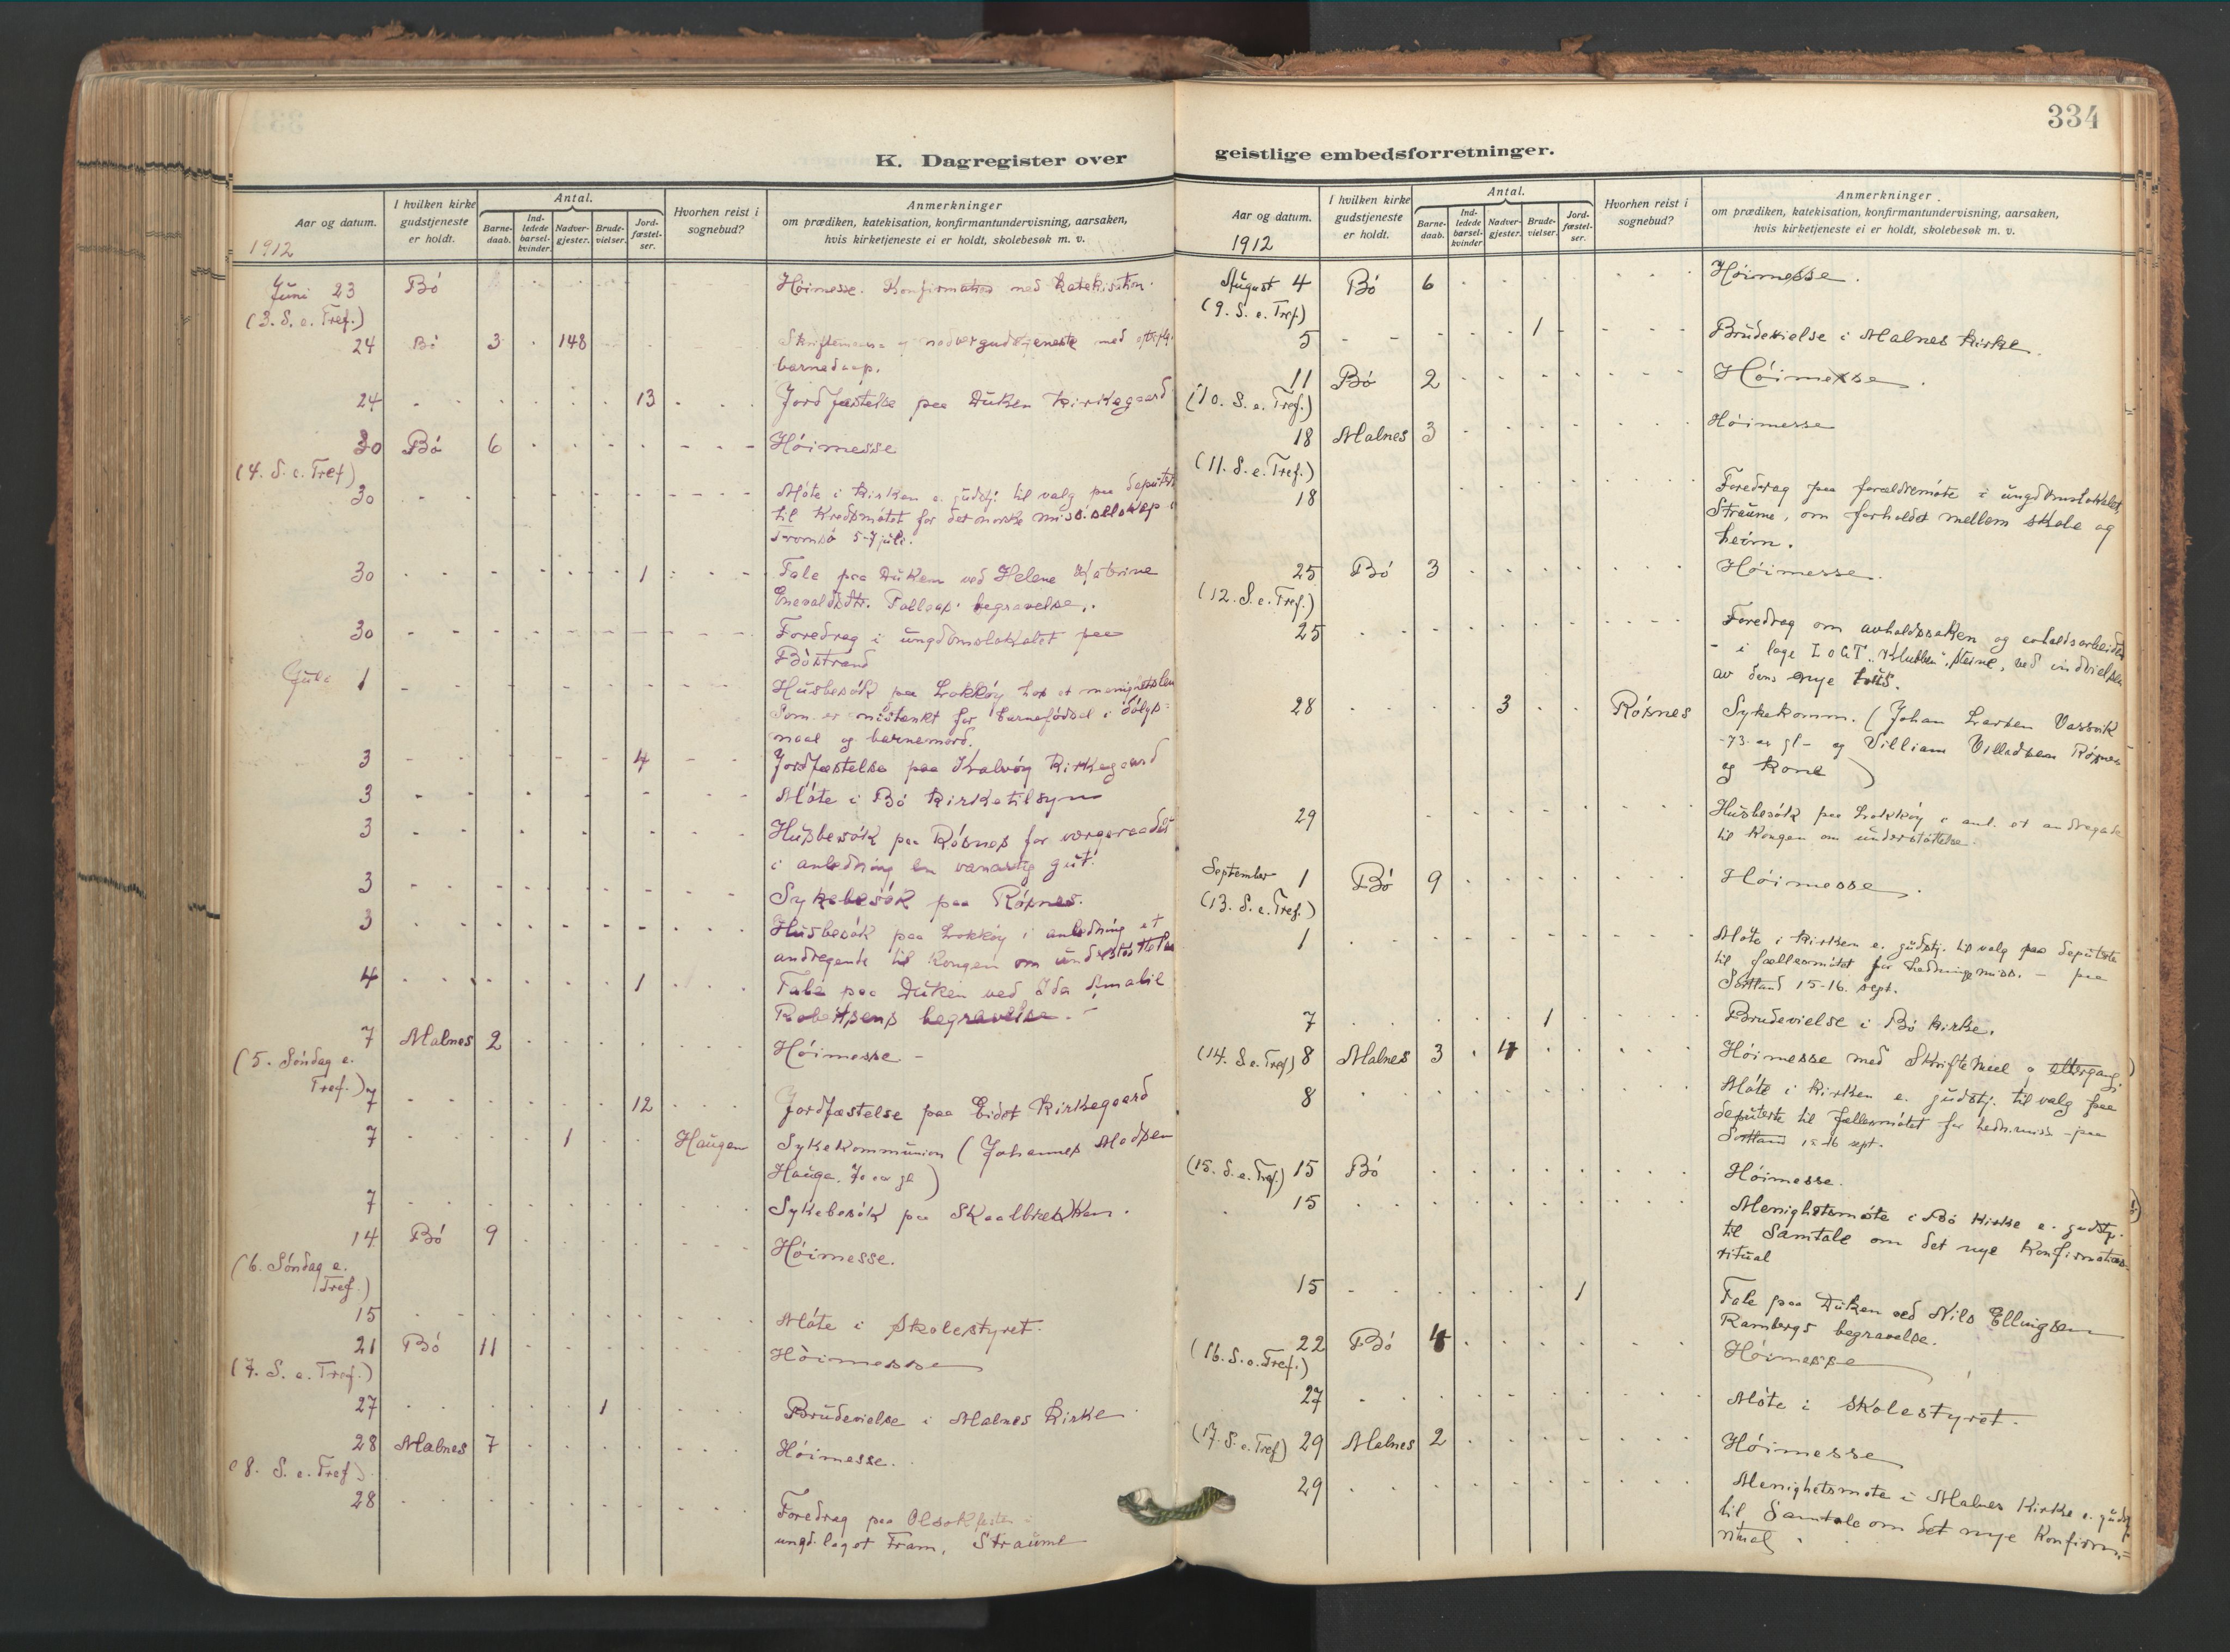 K. Dagregister over
Aar og datum. 1912
I hvilken kirke gudstjeneste er holdt.
Antal.
Barne-daab.
Ind-ledede barsel-kvinder.
Nadver-gjester.
Brude-vielser.
Jord-fæstel-ser.
Hvorhen reist i sognebud?
Anmerkninger
om prædiken, katekisation, konfirmantundervisning, aarsaken,
hvis kirketjeneste ei er holdt, skolebesøk m. v.
Juni 23 Bö Höimesse. Konfirmation med katekisation.
(3. S. e. Tref.)
24 Bö 3 148 nadvergudstjeneste med
barnedaap.
24 13 Jordfæstelse paa Duken kirkegaard
30 Bö 6 Höimesse
(4. S. e. Tref)
30 Möte i kirken e. gudstj. til valg paa
til Kredsmötet for det norske miss.selskap
Tromsö 5-7 juli.
30 1 Tale paa Duken ved Helene Katrine
begravelse.
30 Foredrag i ungdomslokalet paa
Böstrand
Juli 1 Husbesök paa Lokköy hos et
som er mistænkt for barnefödsel i dölgs=
maal og barnemord.
3 4 Jordfæstelse paa Kalvöy kirkegaard
3 Möte i Bö kirketilsyn
3 Husbesök paa Rösnes for vergeraadet
i anledning en vanartig gut.
3 Sykebesök paa Rösnes.
3 Husbesök paa Lokköy i anledning et
andragende til Kongen om understöttelse
4 1 Tale paa Duken ved Ida Amalie
Robertsens begravelse. -
7 Malnes 2 Höimesse -
(5. Söndag e.
Tref.)
7 12 Jordfæstelse paa Eidet kirkegaard
7 1 Haugen Sykekommunion (Johannes Madsen
Haugen. 70 aar gl)
7 Sykebesök paa Skaalbrekken.
14 Bö 9 Höimesse.
(6. Söndag e.
Tref.)
15 Möte i Skolestyret.
21 Bö 11 Höimesse
(7. S. e. Tref.)
27 1 Brudevielse i Malnes kirke
28 Malnes 7 Höimesse.
(8. S. e. Tref.)
28 Foredrag paa Olsokfesten i
ungd.laget Fram, Straume
334
geistlige embedsforretninger.
Aar og datum. 1912
I hvilken kirke gudstjeneste er holdt.
Antal.
Barne-daab.
Ind-ledede barsel-kvinder
Nadver-gjester.
Brude-vielser.
Jord-fæstel-ser.
Hvorhen reist i sognebud?
Anmerkninger.
om prædiken, katekisation, konfirmantundervisning, aarsaken,
hvis kirketjeneste ei er holdt, skolebesøk m. v.
August 4 Bö 6 Höimesse.
(9. S. e. Tref)
5 1 Brudevielse i Malnes kirke.
11 Bö 2 Höimesse.
(10. S. e. Tref.)
18 Malnes 3 Höimesse
(11. S. e. Tref.)
18 Foredrag paa forældremöte i ungdomslokalet,
Straume, om forholdet mellem skole og
heim.
25 Bö 3 Höimesse.
(12. S. e. Tref.)
25 Foredrag om avholdssaken og avholdsarbeidet
- i loge I.O.G.T. "Klubben", Steine, ved indvielsen
av dens nye hus.
28 3 Rösnes Sykekomm. (Johan Larsen Vassvik
- 73 aar gl - og Villiam Villadsen Rösnes
og kone)
29 Husbesök paa Lokköy i anl. et andragende
til Kongen om understöttelse.
September 1 Bö 9 Höimesse.
(13. S. e. Tref.)
1 Möte i kirken e. gudstj. til valg paa deputerte
til fællesmötet for hedningemiss. - paa
Sortland 15-16. sept.
7 1 Brudevielse i Bö kirke.
(14. S. e. Tref) 8 Malnes 3 4 Höimesse med Skriftemaal o altergang.
8 Möte i kirken e. gudstj. til valg paa
deputerte til fællesmötet for hedn.miss. - paa
Sortland 15-16 sept.
(15. S. e. Tref.) 15 Bö Höimesse.
15 Menighetsmöte i Bö kirke e. gudstj.
til Samtale om det nye konfirmations-
ritual
15 1 Tale paa Duken ved Nils Ellingsen
Rambergs begravelse.
22 Bö 4 Höimesse
(16. S. e. Tref.)
27 Möte i skolestyret.
(17. S. e. Tref) 29 Malnes 2 Höimesse
29 Menighetsmöte i Malnes kirke e. gudstj.
til Samtale om det nye Konfirm.=
ritual.